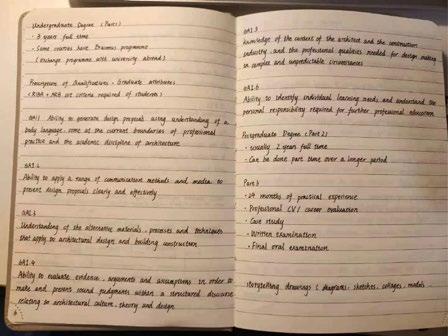 Undergraduate Degree (Part 1)
- 3 years full time
- Some courses have Erasmus programme
(Exchange programme with university abroad)
Prescription of Qualification - Graduate attributes
(RIBA + ARB set criteria required of students)
GA1.1 Ability to generate design proposals using understanding of a
body language, some at the current boundaries of professional
practice and the academic discipline of architecture
GA1.2
Ability to apply a range of communication methods and media to
present design proposals clearly and effectively
GA1.3
Understanding of the alternative materials, processes and techniques
that apply to architectural design and building construction
GA1.4
Ability to evaluate evidence, arguments and assumptions in order to
make and present sound judgments within a structured discourse
relating to architectural culture, theory and design
GA1.5
Knowledge of the context of the architect and the construction
industry, and the professional qualities needed for decision making
in complex and unpredictable circumstances
GA1.6
Ability to identify individual learning needs and understand the
personal responsibility required for further professional education
Postgraduate Degree (Part 2)
- usually 2 years full time
- Can be done part time over a longer period
Part 3
- 24 months of practical experience
- Professional CV / career evaluation
- Case study
- Written Examination
- Final oral examination
storytelling drawings (diagrams, sketches, collages, models